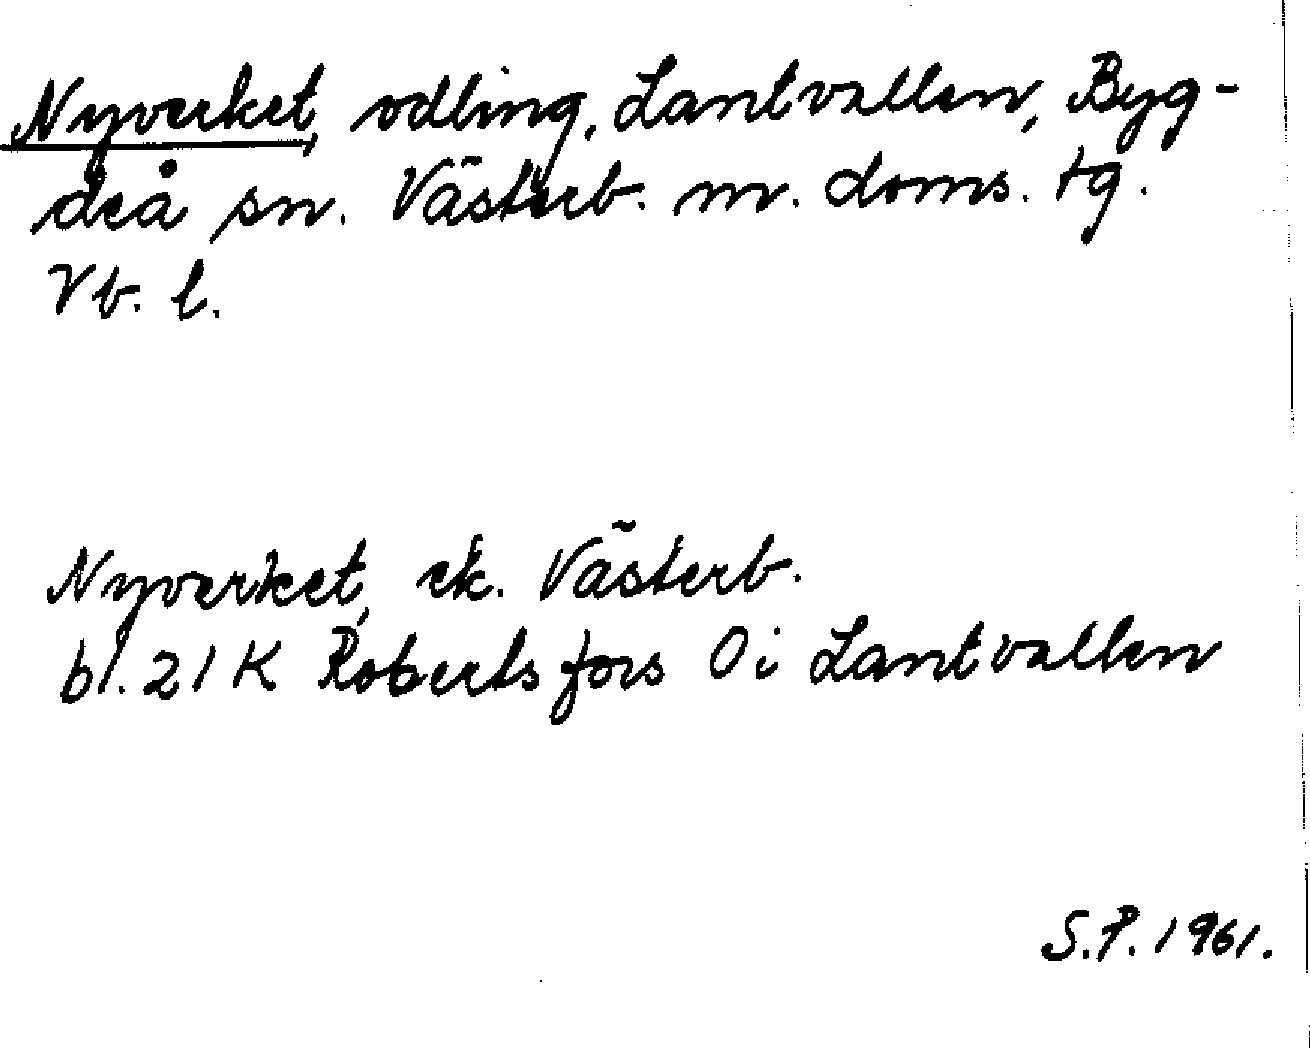 Nyverket, odling, Lantvallen, Byg-
deå sn. Västerb. m. doms. tg.
Vb. l.
Nyverket, ek. Västerb.
bl. 21 K Robertsfors O i Lantvallen
S.P. 1961.